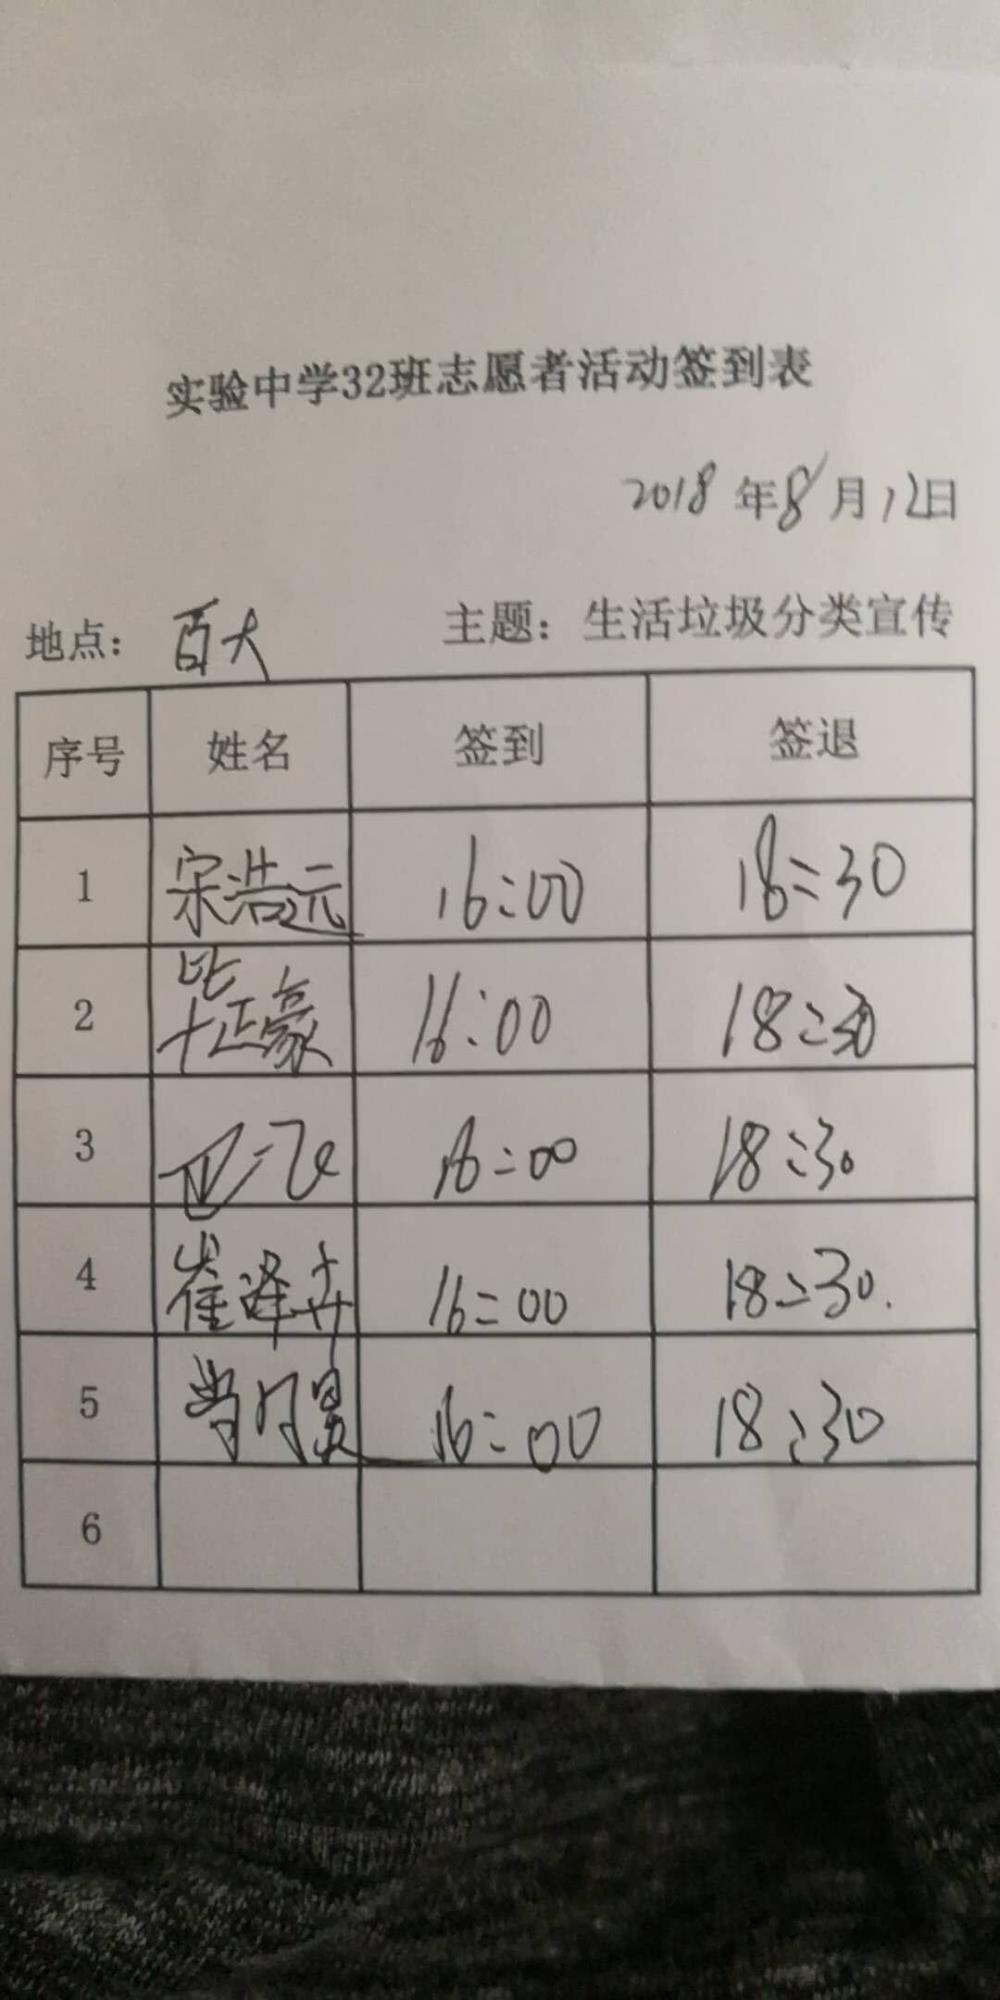 实验中学32班志愿者活动签到表
2018年8月12日
地点：百大 主题：生活垃圾分类宣传
序号 姓名 签到 签退
1 宋浩远 16:00 18:30
2 毕正豪 16:00 18:30
3 16:00 18:30
4 崔泽卉 16:00 18:30.
5 16:00 18:30
6